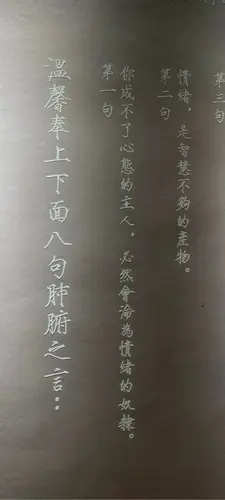 溫馨奉上下面八句肺腑之言：
第一句
你成不了心態的主人，必然會淪為情緒的奴隸。
第二句
情緒，是智慧不夠的產物。
第三句